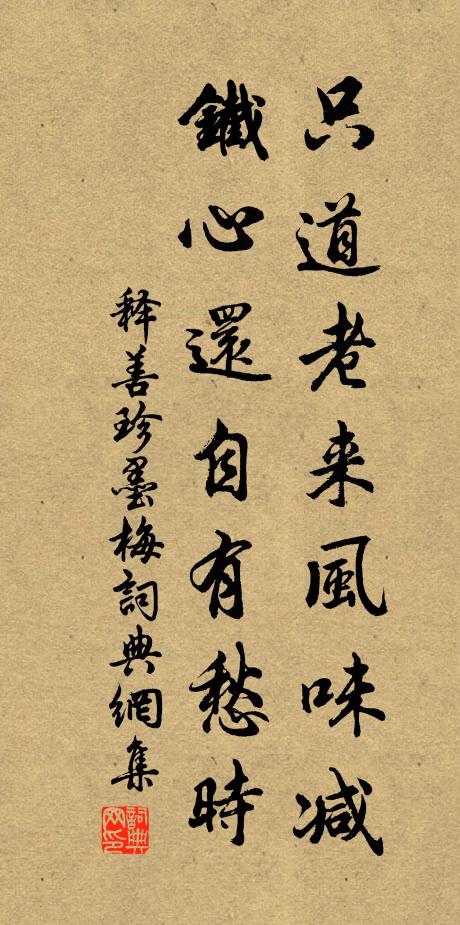 只道老来風味减
鐵心還自有愁時
释善珍墨梅詞典網集
詞典網印